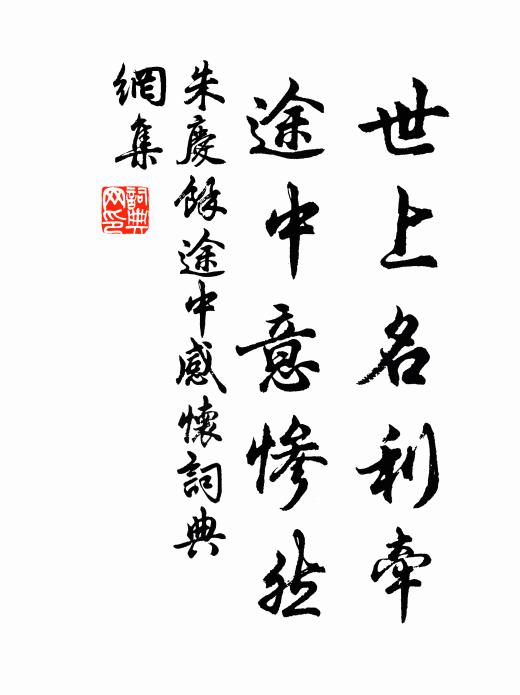 世上名利牽
途中意慘然
朱慶餘途中感懷詞典
網集
詞典網印